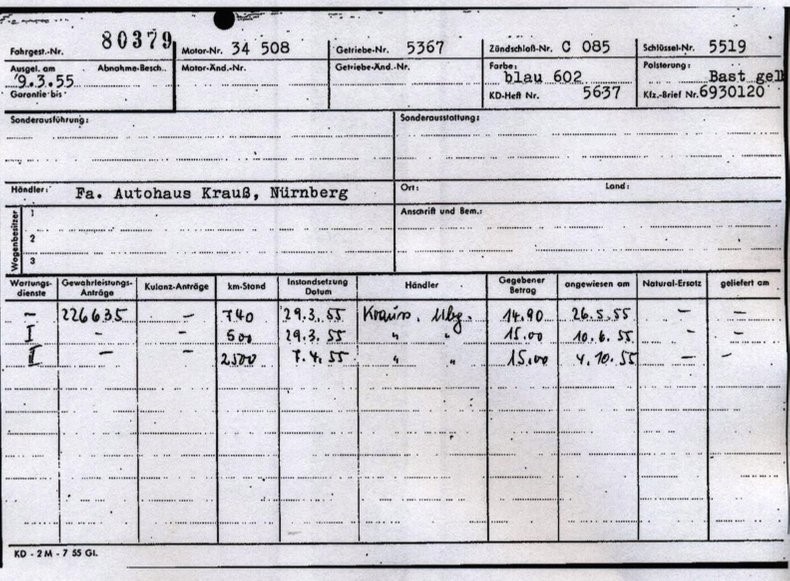 Fahrgest.-Nr. 80379 Motor-Nr. 34 508 Getriebe-Nr. 5367 Zündschloß-Nr. C 085 Schlüssel-Nr. 5519
Ausgel. am Abnahme-Besch. Motor-Änd.-Nr. Getriebe-Änd.-Nr. Farbe: Polsterung:
9.3.55 blau 602 Bast gel
Garantie bis KD-Heft Nr. 5637 Kfz.-Brief Nr. 6930120
Sonderausführung: Sonderausstattung:
Händler: Fa. Autohaus Krauß, Nürnberg Ort: Land:
Wagenbesitzer 1 Anschrift und Bem.:
2
3
Wartungs-dienste Gewährleistungs-Anträge Kulanz-Anträge km-Stand Instandsetzung Datum Händler Gegebener Betrag angewiesen am Natural-Ersatz geliefert am
- 226635 - 740 29.3.55 Krauss, Nbg. 14.90 26.5.55 - -
I - - 500 29.3.55 " " 15.00 10.6.55 - -
II - - 2500 7.4.55 " " 15.00 4.10.55 - -
KD - 2 M - 7 55 Gl.